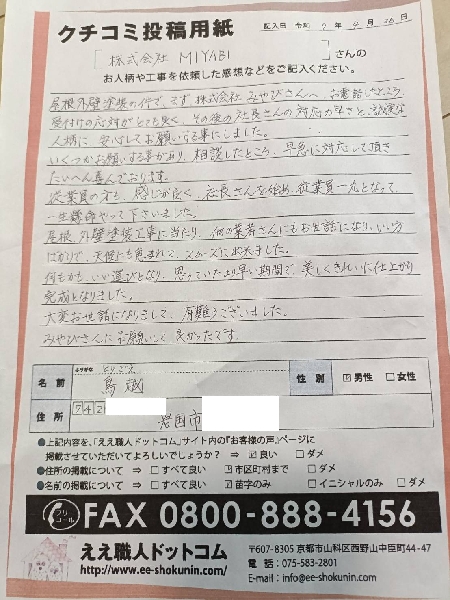 クチコミ投稿用紙
記入日 令和 7 年 4 月 26 日
[ 株式会社 MIYABI ] さんの
お人柄や工事を依頼した感想などをご記入ください。
屋根外壁塗装の件で、まず株式会社みやびさんへお電話したところ
受付けの応対がとても良く、その後の社長さんの対応の早さと誠実な
人柄に安心してお願いする事にしました。
いくつかお願いする事があり、相談したところ、早急に対応して頂き
たいへん喜んでおります。
従業員の方も、感じが良く、社長さんを始め、従業員一丸となって、
一生懸命やって下さいました。
屋根、外壁塗装工事に当たり、他の業者さんにもお世話になり、いい方
ばかりで、天候にも恵まれて、スムーズに出来ました。
何もかも、いい運びとなり、思っていたより早い期間で、美しくきれいに仕上がり
完成となりました。
大変お世話になりまして、有難うございました。
みやびさんにお願いして良かったです。
ふりがな とりごえ
名前 鳥越 性別 ☑男性 □女性
住所 〒742
岩国市
●上記内容を、「ええ職人ドットコム」サイト内の『お客様の声』ページに
掲載させていただいてよろしいでしょうか? ⇒ ☑良い □ダメ
●住所の掲載について ⇒ □すべて良い ☑市区町村まで □ダメ
●名前の掲載について ⇒ □すべて良い ☑苗字のみ □イニシャルのみ □ダメ
フリーコール FAX 0800-888-4156
ええ職人ドットコム
http://www.ee-shokunin.com/
〒607-8305 京都市山科区西野山中臣町44-47
電話:075-583-2801
E-mail:info@ee-shokunin.com